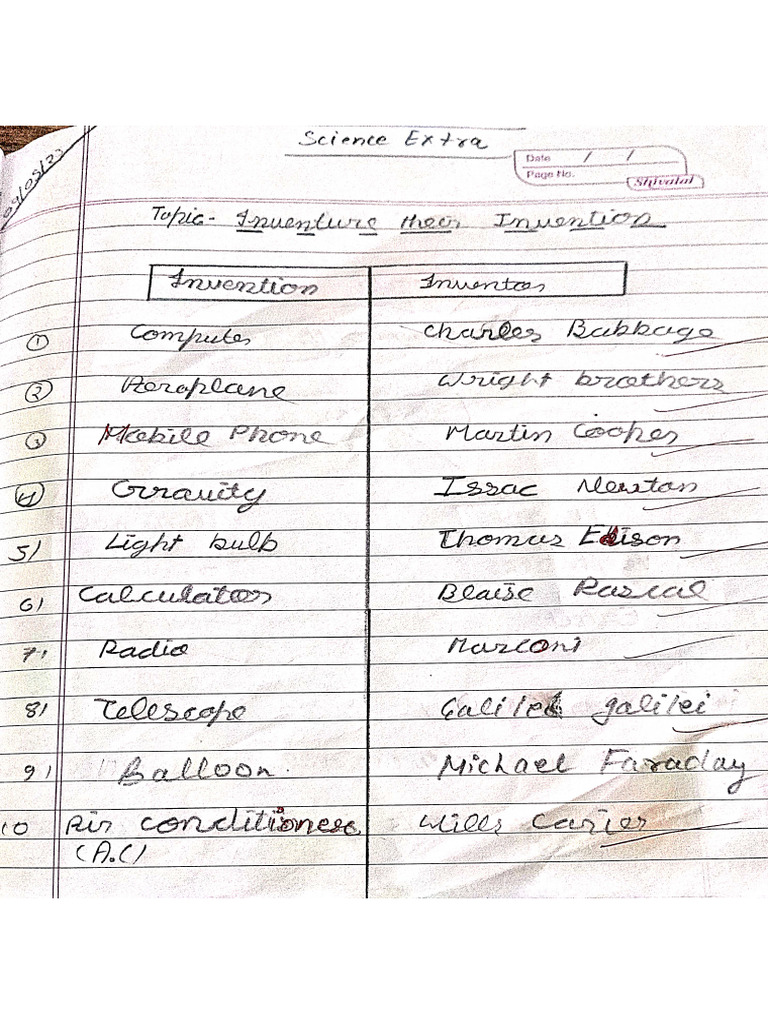 Science Extra
09/05/23
Date / /
Page No.
Shivalal
Topic- Inventure their Invention
Invention Inventor
1 Computer Charles Babbage
2 Aeroplane Wright brothers
3 Mobile Phone Martin Cooper
4 Gravity Issac Newton
5) Light bulb Thomas Edison
6) Calculator Blaise Pascal
7) Radio Marconi
8) Telescope Galilei galilei
9) Balloon. Michael Faraday
10 Air conditioner Wills Carier
(A.C)